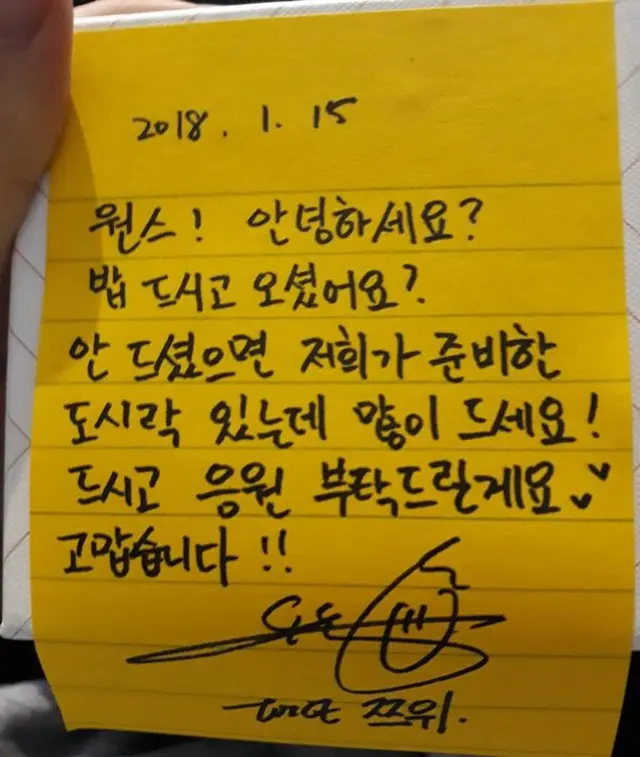 2018. 1. 15
원스! 안녕하세요?
밥 드시고 오셨어요?
안 드셨으면 저희가 준비한
도시락 있는데 많이 드세요!
드시고 응원 부탁드릴게요
고맙습니다!!
쯔위.